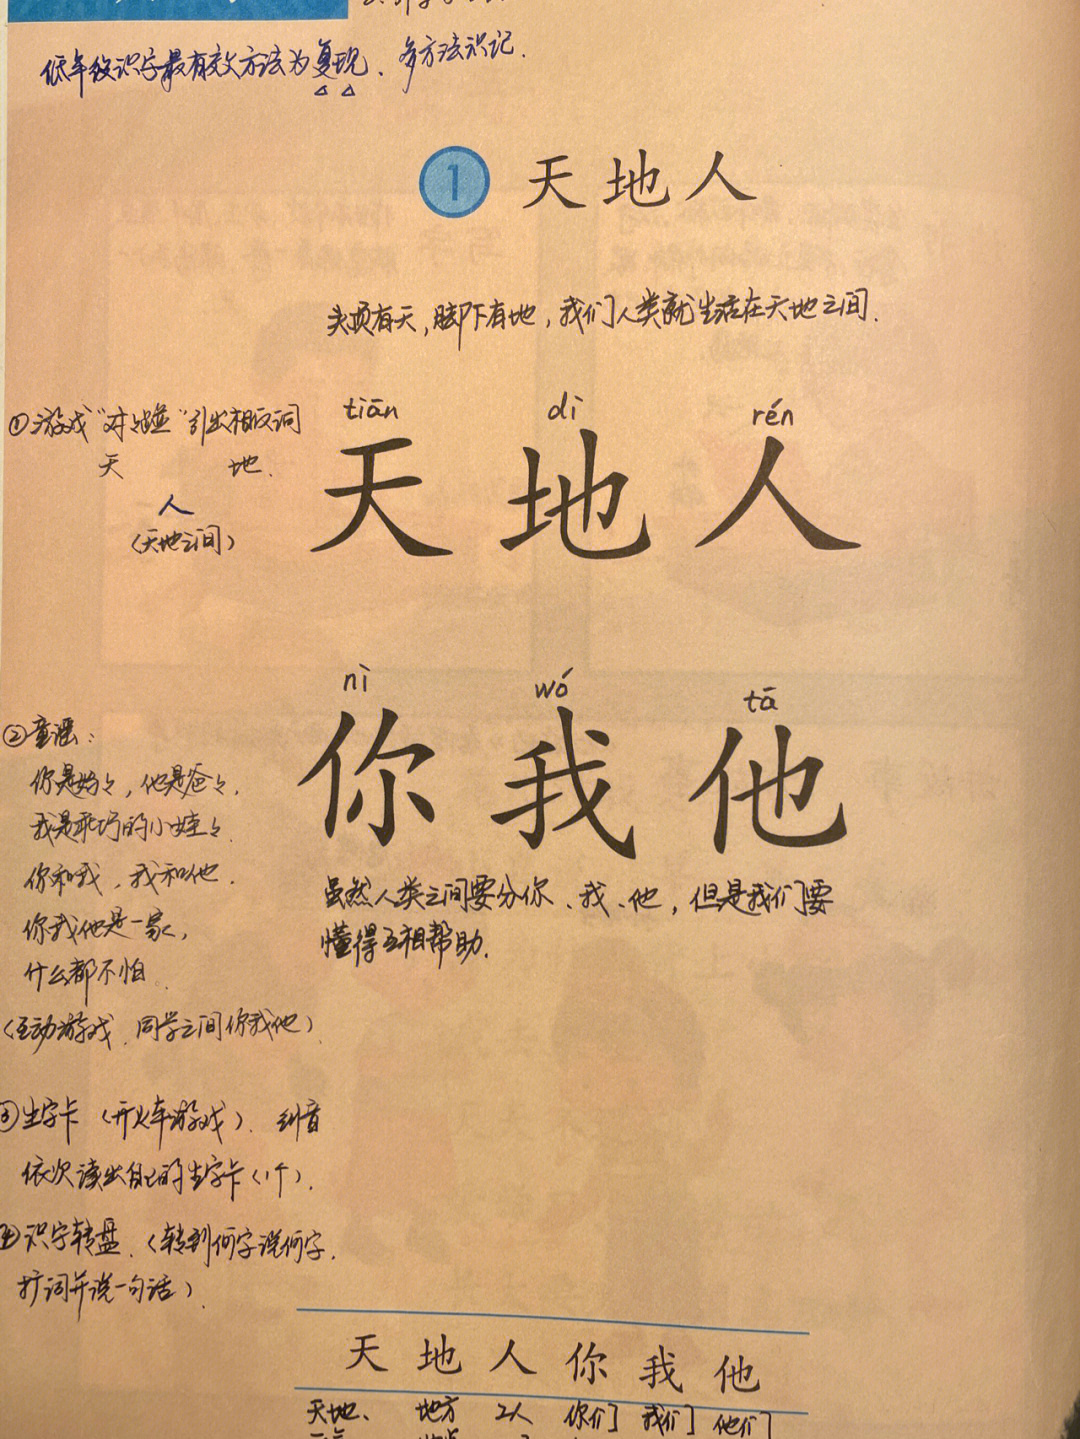 低年级识字最有效方法为复现、多方法识记.
1 天地人
头顶有天,脚下有地,我们人类就生活在天地之间.
①游戏"对对碰"引出相反词
天 地.
人
(天地之间)
tiān dì rén
天 地 人
nì wó tā
你 我 他
②童谣:
你是妈々,他是爸々,
我是乖巧的小娃々.
你和我,我和他.
你我他是一家,
什么都不怕.
(互动游戏.同学之间你我他)
虽然人类之间要分你、我、他,但是我们要
懂得互相帮助.
③生字卡(开火车游戏).纠音
依次读出自己的生字卡(1个).
④识字转盘.(转到何字说何字.
扩词并说一句话)
天 地 人 你 我 他
天地、 地方 工人 你们 我们 他们